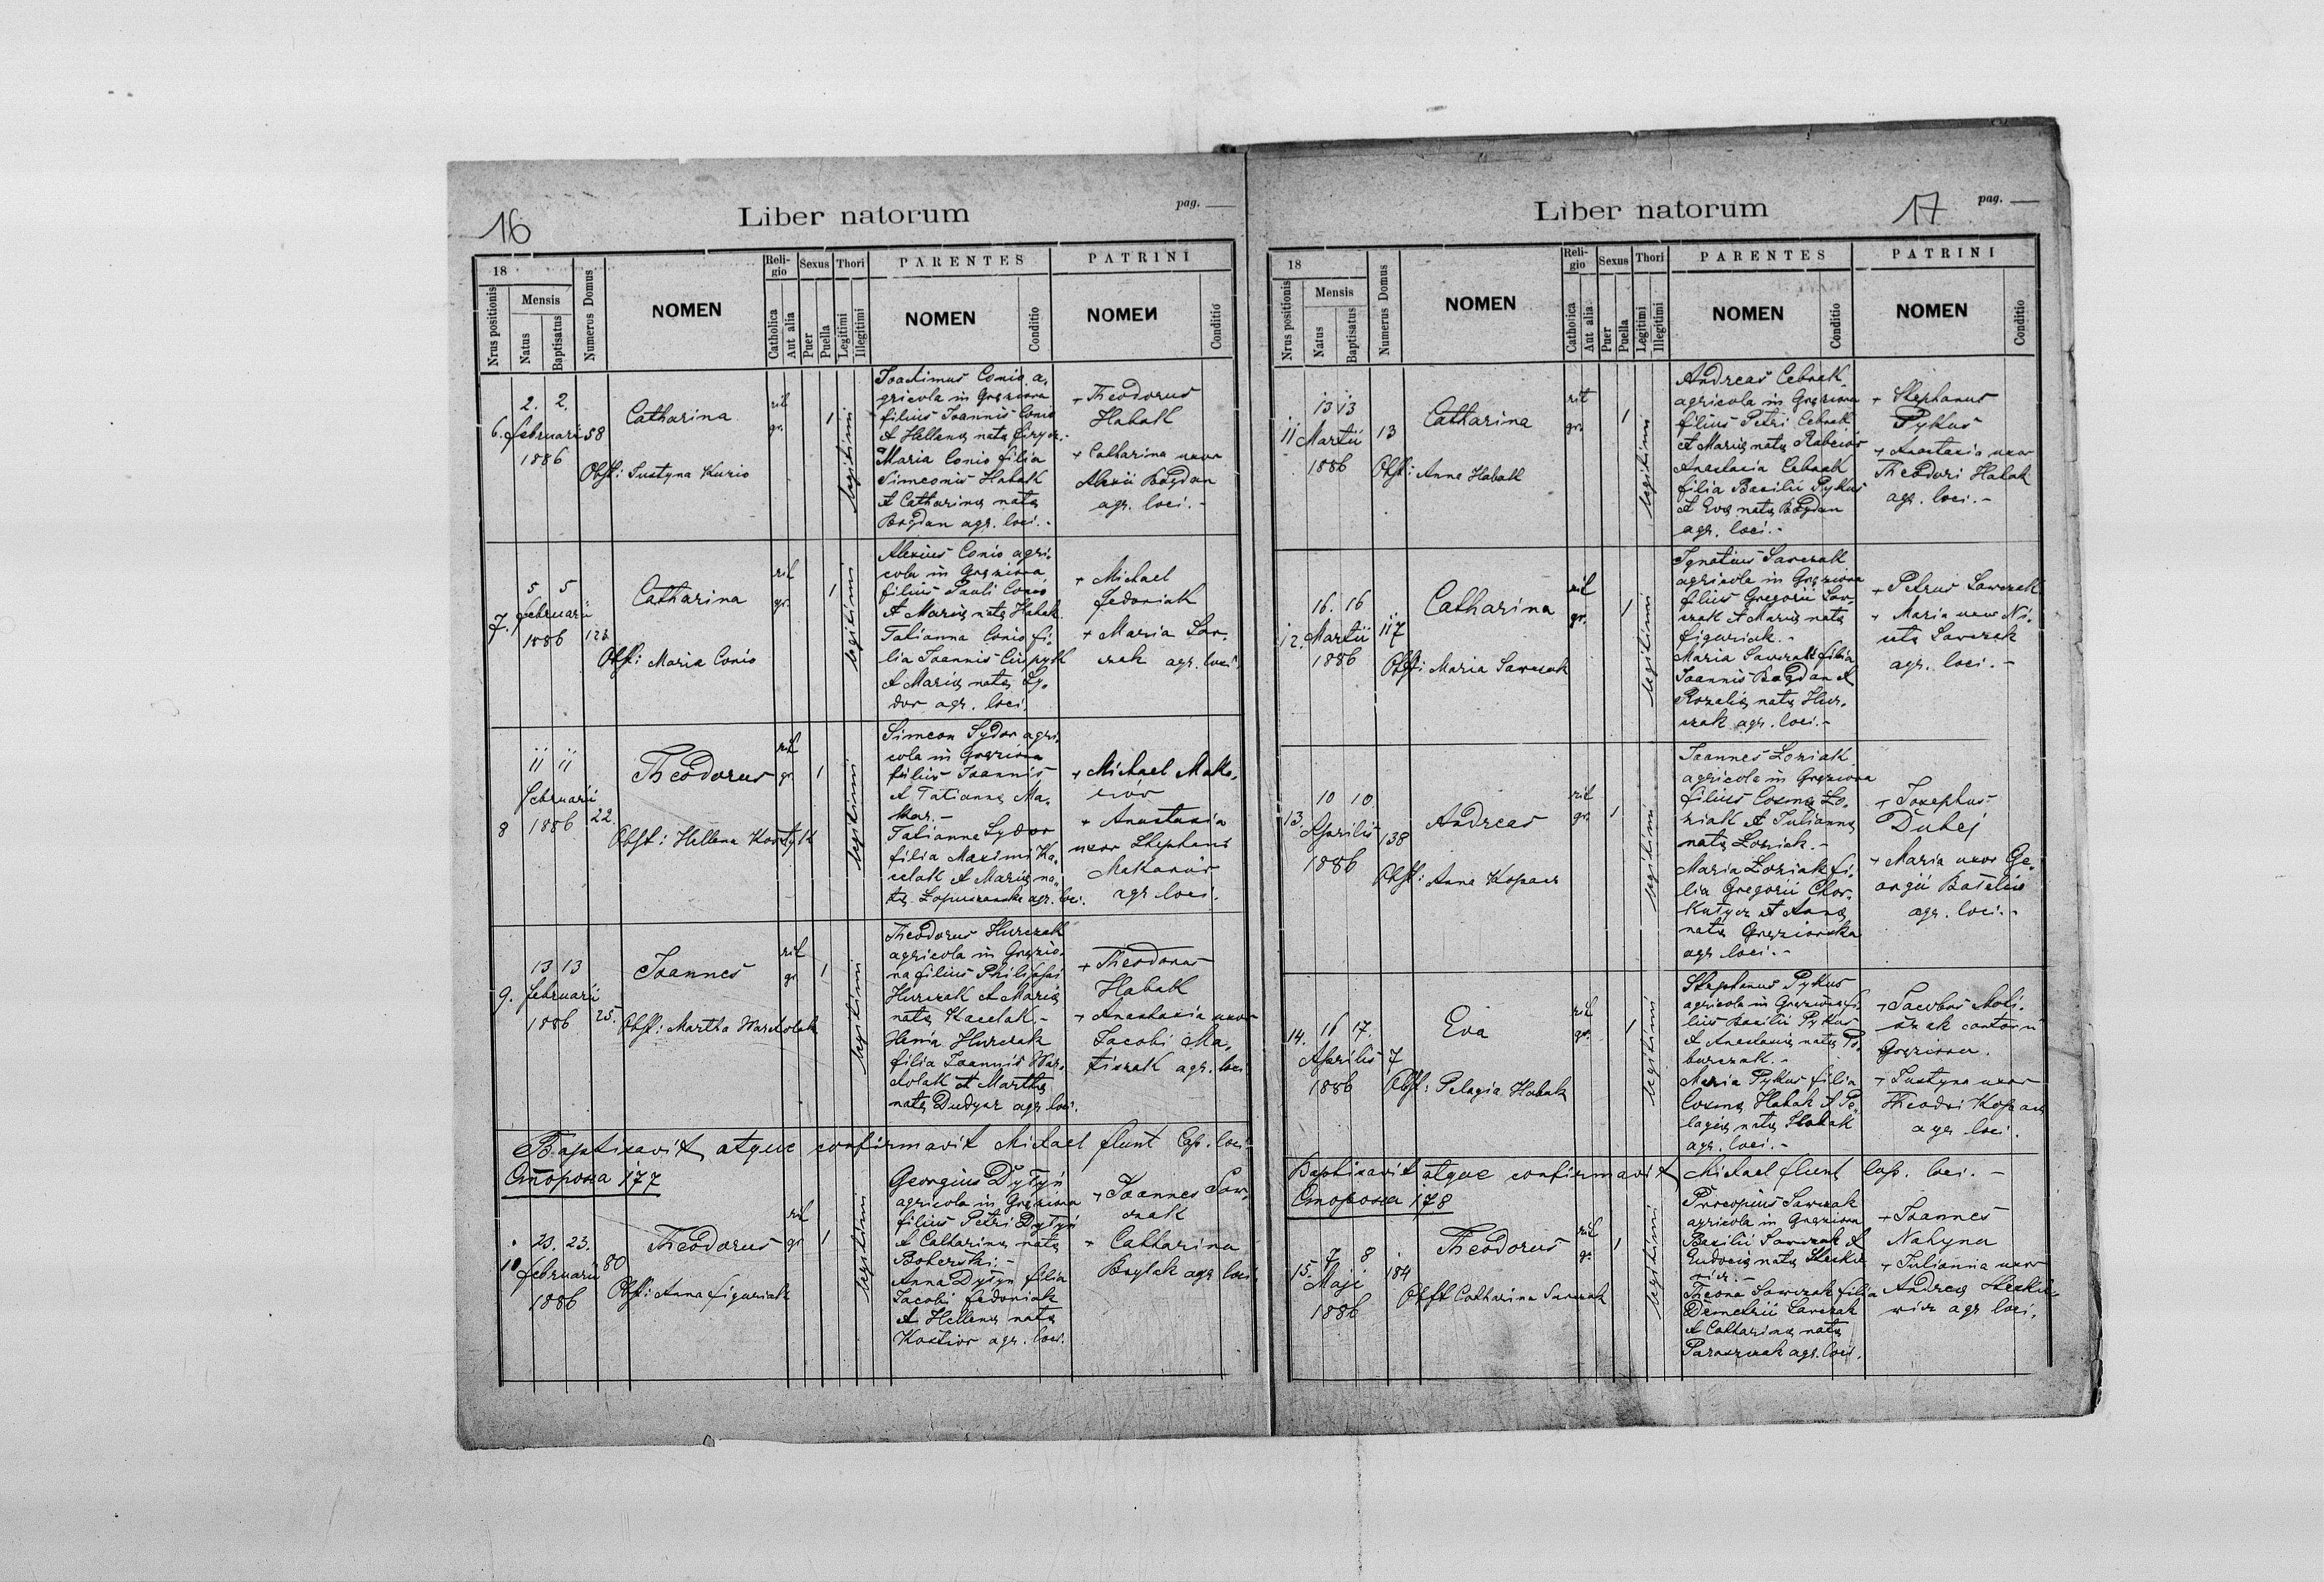 16
Liber natorum
pag.
18
Nrus positionis
Mensis
Natus
Baptisatus
Numerus Domus
NOMEN
Religio
Catholica
Aut alia
Sexus
Puer
Puella
Thori
Legitimi
Illegitimi
PARENTES
NOMEN
Conditio
PATRINI
NOMEN
Conditio
6.
2. 2.
februarii
1886
58
Catharina
Obst: Justyna Kurio
rit
gr.
1
legitimi
Joachimus Conio a.
gricola in
filius Joannis Conio
et Hellenę natę
Maria Conio filia
Simeonis Habak
et Catharinę natę
Bogdan agr. loci. -
+ Theodorus
Habak
+ Catharina uxor
Alexii Bogdan
agr. loci. -
7.
5 5
februarii
1886
Catharina
Obst: Maria Conio
rit
gr.
1
legitimi
Alexius Conio agri.
cola in
filius Pauli Conio
et Marię natę Habak
Tatianna Conio fi.
lia Joannis
et Marię natę Sy.
dor agr. loci.
+ Michael
Fedoniak
+ Maria Saw.
czak agr. loci.
8
11 11
februarii
1886
22.
Theodorus
Obst: Hellena
rit
gr.
1
legitimi
Simeon Sydor agri.
cola in
filius Joannis
et Tatiannę Ma.
kar. -
Tatianna Sydor
filia Maximi Ka.
celak et Marię na.
tę agr. loci.
+ Michael Maka.
+ Anastasia
uxor Stephani
agr loci.
9.
13 13
februarii
1886
25.
Joannes
Obst: Martha Warcholak
rit
gr
1
legitimi
Theodorus Hurczak
agricola in
na filius Philippi
Hurczak et Marię
natę Kacelak. -
Hurczak
filia Joannis War.
cholak et Marthę
natę Dudycz agr loci.
+ Theodorus
Habak
+ Anastasia uxor
Jacobi Ma.
agr. loci
Baptisavit atque confirmavit Michael Cap. loci
Сторона 177
10
23. 23.
februarii
1886
80
Theodorus
Obst: Anna Figuriak
rit
gr
1
legitimi
Georgius Dytyń
agricola in
filius Petri Dytyń
et Catharinę natę
Anna Dytyń filia
Jacobi Fedoniak
et Hellenę natę
Kostiow agr. loci.
+ Joannes Saw.
czak
+ Catharina
agr loci
Liber natorum
17
pag.
18
Nrus positionis
Mensis
Natus
Baptisatus
Numerus Domus
NOMEN
Religio
Catholica
Aut alia
Sexus
Puer
Puella
Thori
Legitimi
Illegitimi
PARENTES
NOMEN
Conditio
PATRINI
NOMEN
Conditio
11
13 13
Martii
1886
13
Catharina
Obst: Anna Habak
rit
gr.
1
legitimi
Andreas Cebrak
agricola in
filius Petri Cebrak
et Marię natę
Anastasia Cebrak
filia Basilii Pykus
et Evę natę Bogdan
agr. loci. -
+ Stephanus
Pykus
+ Anastasia uxor
Theodori Habak
agr. loci. -
12.
16. 16
Martii
1886
117
Catharina
Obst: Maria Sawczak
rit
gr.
1
legitimi
Ignatius Sawczak
agricola in
filius Gregorii Saw.
czak et Marię natę
Figuriak. -
Maria Sawczak filia
Joannis Bogdan et
Rozalię natę Hur.
czak agr. loci. -
+ Petrus Sawczak
+ Maria uxor Ni.
cetę Sawczak
agr. loci. -
13.
10 10
Aprilis
1886
138
Andreas
Obst: Anna Kopacz
rit
gr.
1
legitimi
Joannes Łoziak
agricola in
filius Cosmę Ło.
ziak et Juliannę
natę Łoziak. -
Maria Łoziak fi.
lia Gregorii Chor.
et Annę
natę
agr loci. -
+ Josephus
Dubej
+ Maria uxor Ge.
orgii
agr. loci. -
14.
16 17.
Aprilis
1886
7
Eva
Obst: Pelagia Habak
rit
gr.
1
legitimi
Stephanus Pykus
agricola in
lius Basilii Pykus
et Anastasię natę
Maria Pykus filia
Cosmę Habak et Pe.
lagię natę Habak
agr. loci. -
+ Jacobus
cantor in
+ Justyna uxor
Kopacz
agr loci.
Baptisavit atque confirmavit Michael Cap. loci. -
Сторона 178
15.
7 8
Maji
1886
184
Theodorus
Obst Catharina Sawczak
rit
gr
1
legitimi
Procopius Sawczak
agricola in
Basilii Sawczak et
Eudocię natę
Sawczak filia
Demetrii Sawczak
et Catharinę natę
agr. loci.
+ Joannes
Nahyna
+ Julianna uxor
Andreę
agr loci.